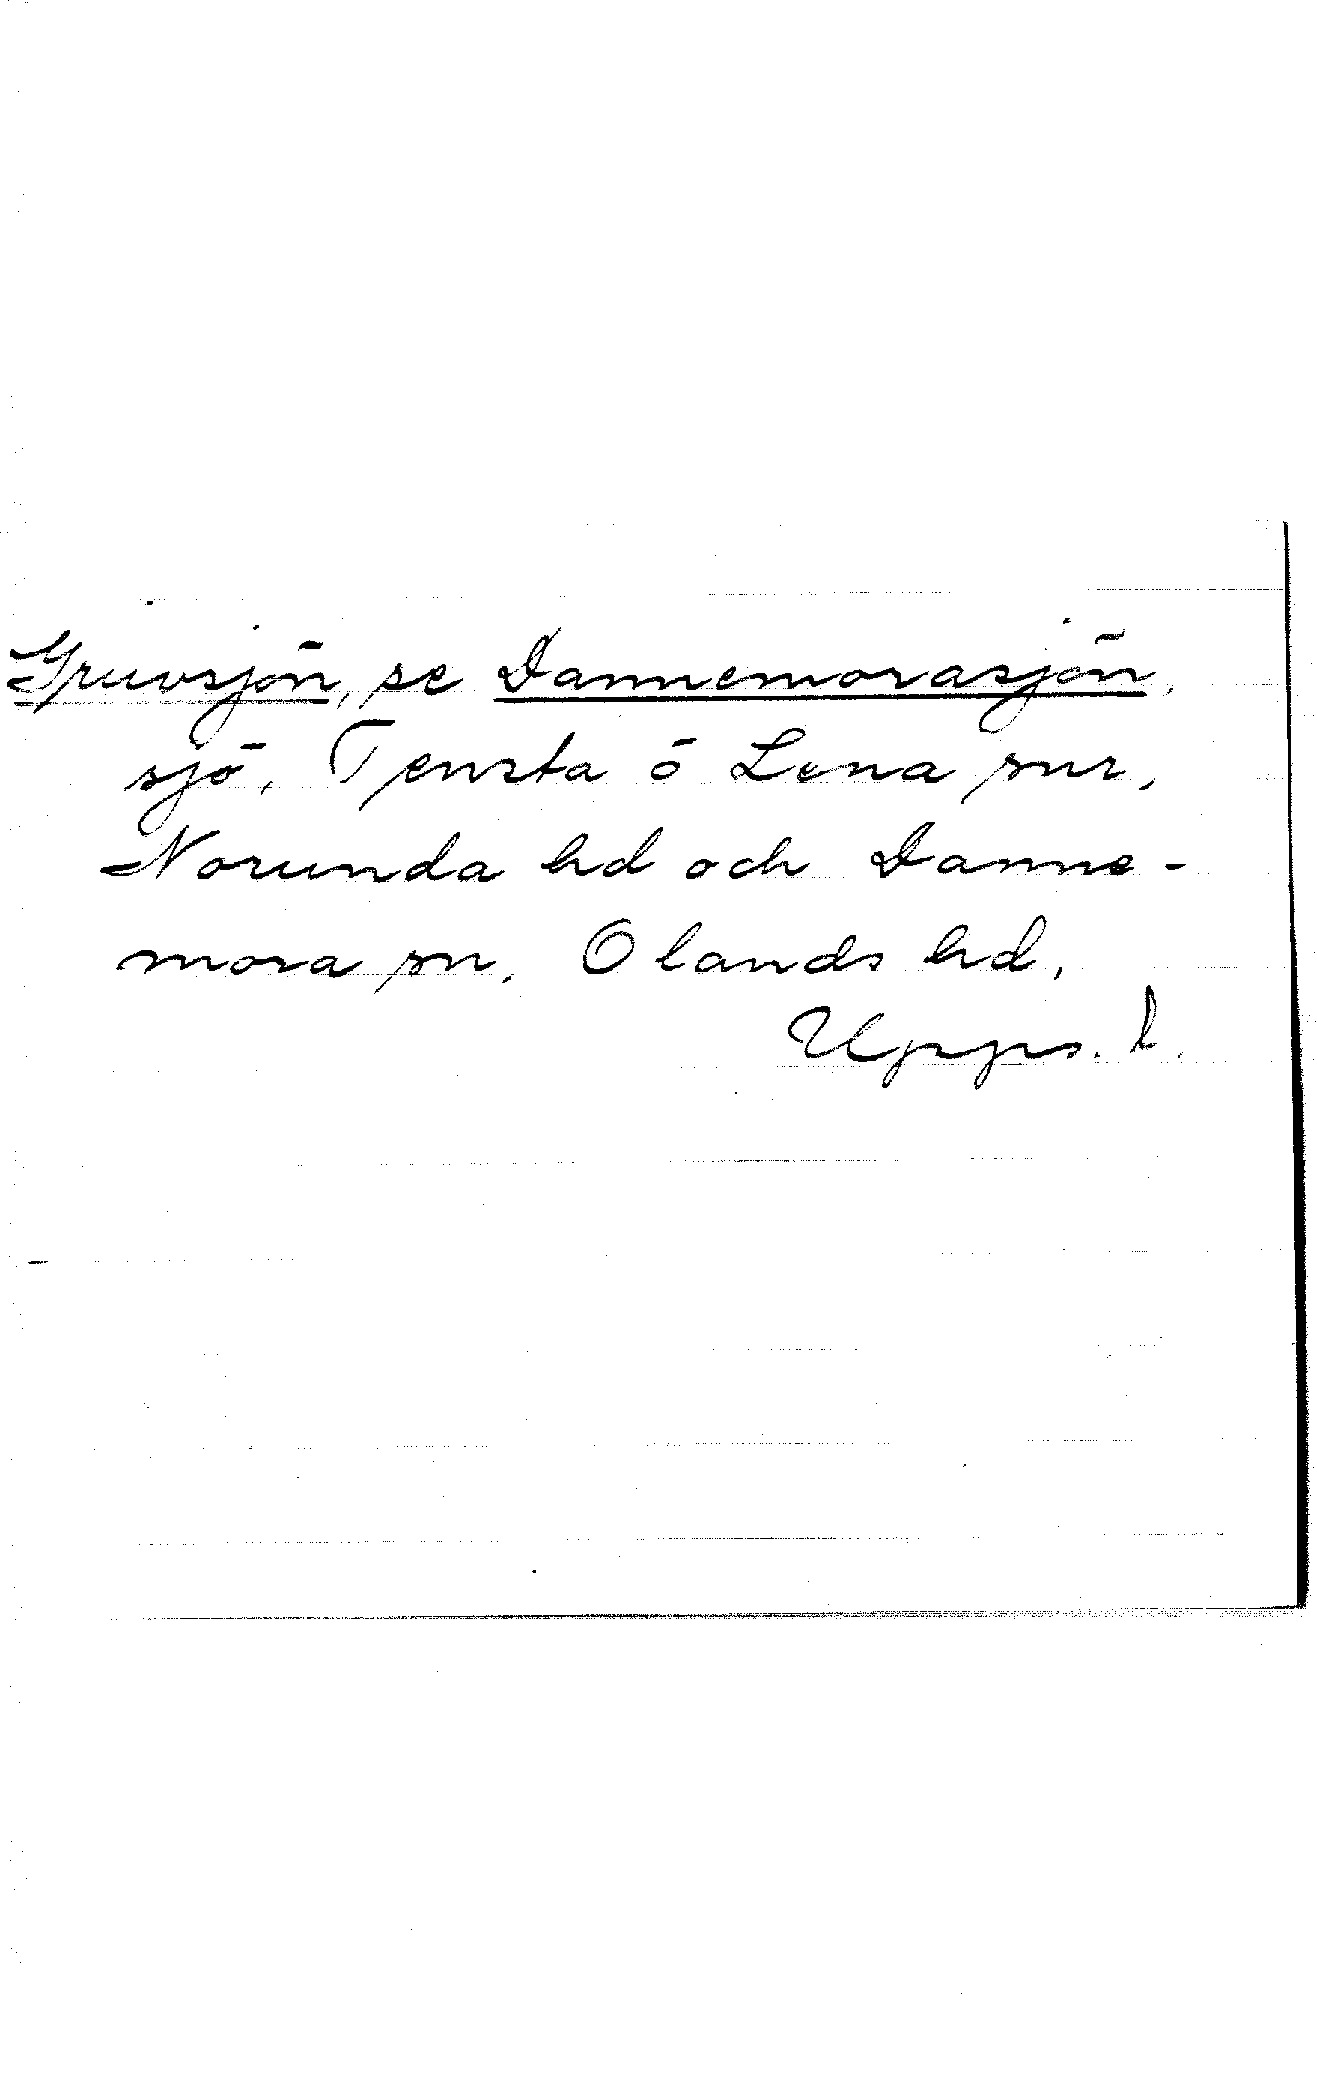 Gruvsjön, se Dannemorasjön,
sjö, Tensta o Lena snr,
Norunda hd och Danne-
mora sn, Olands hd,
Upps. l.